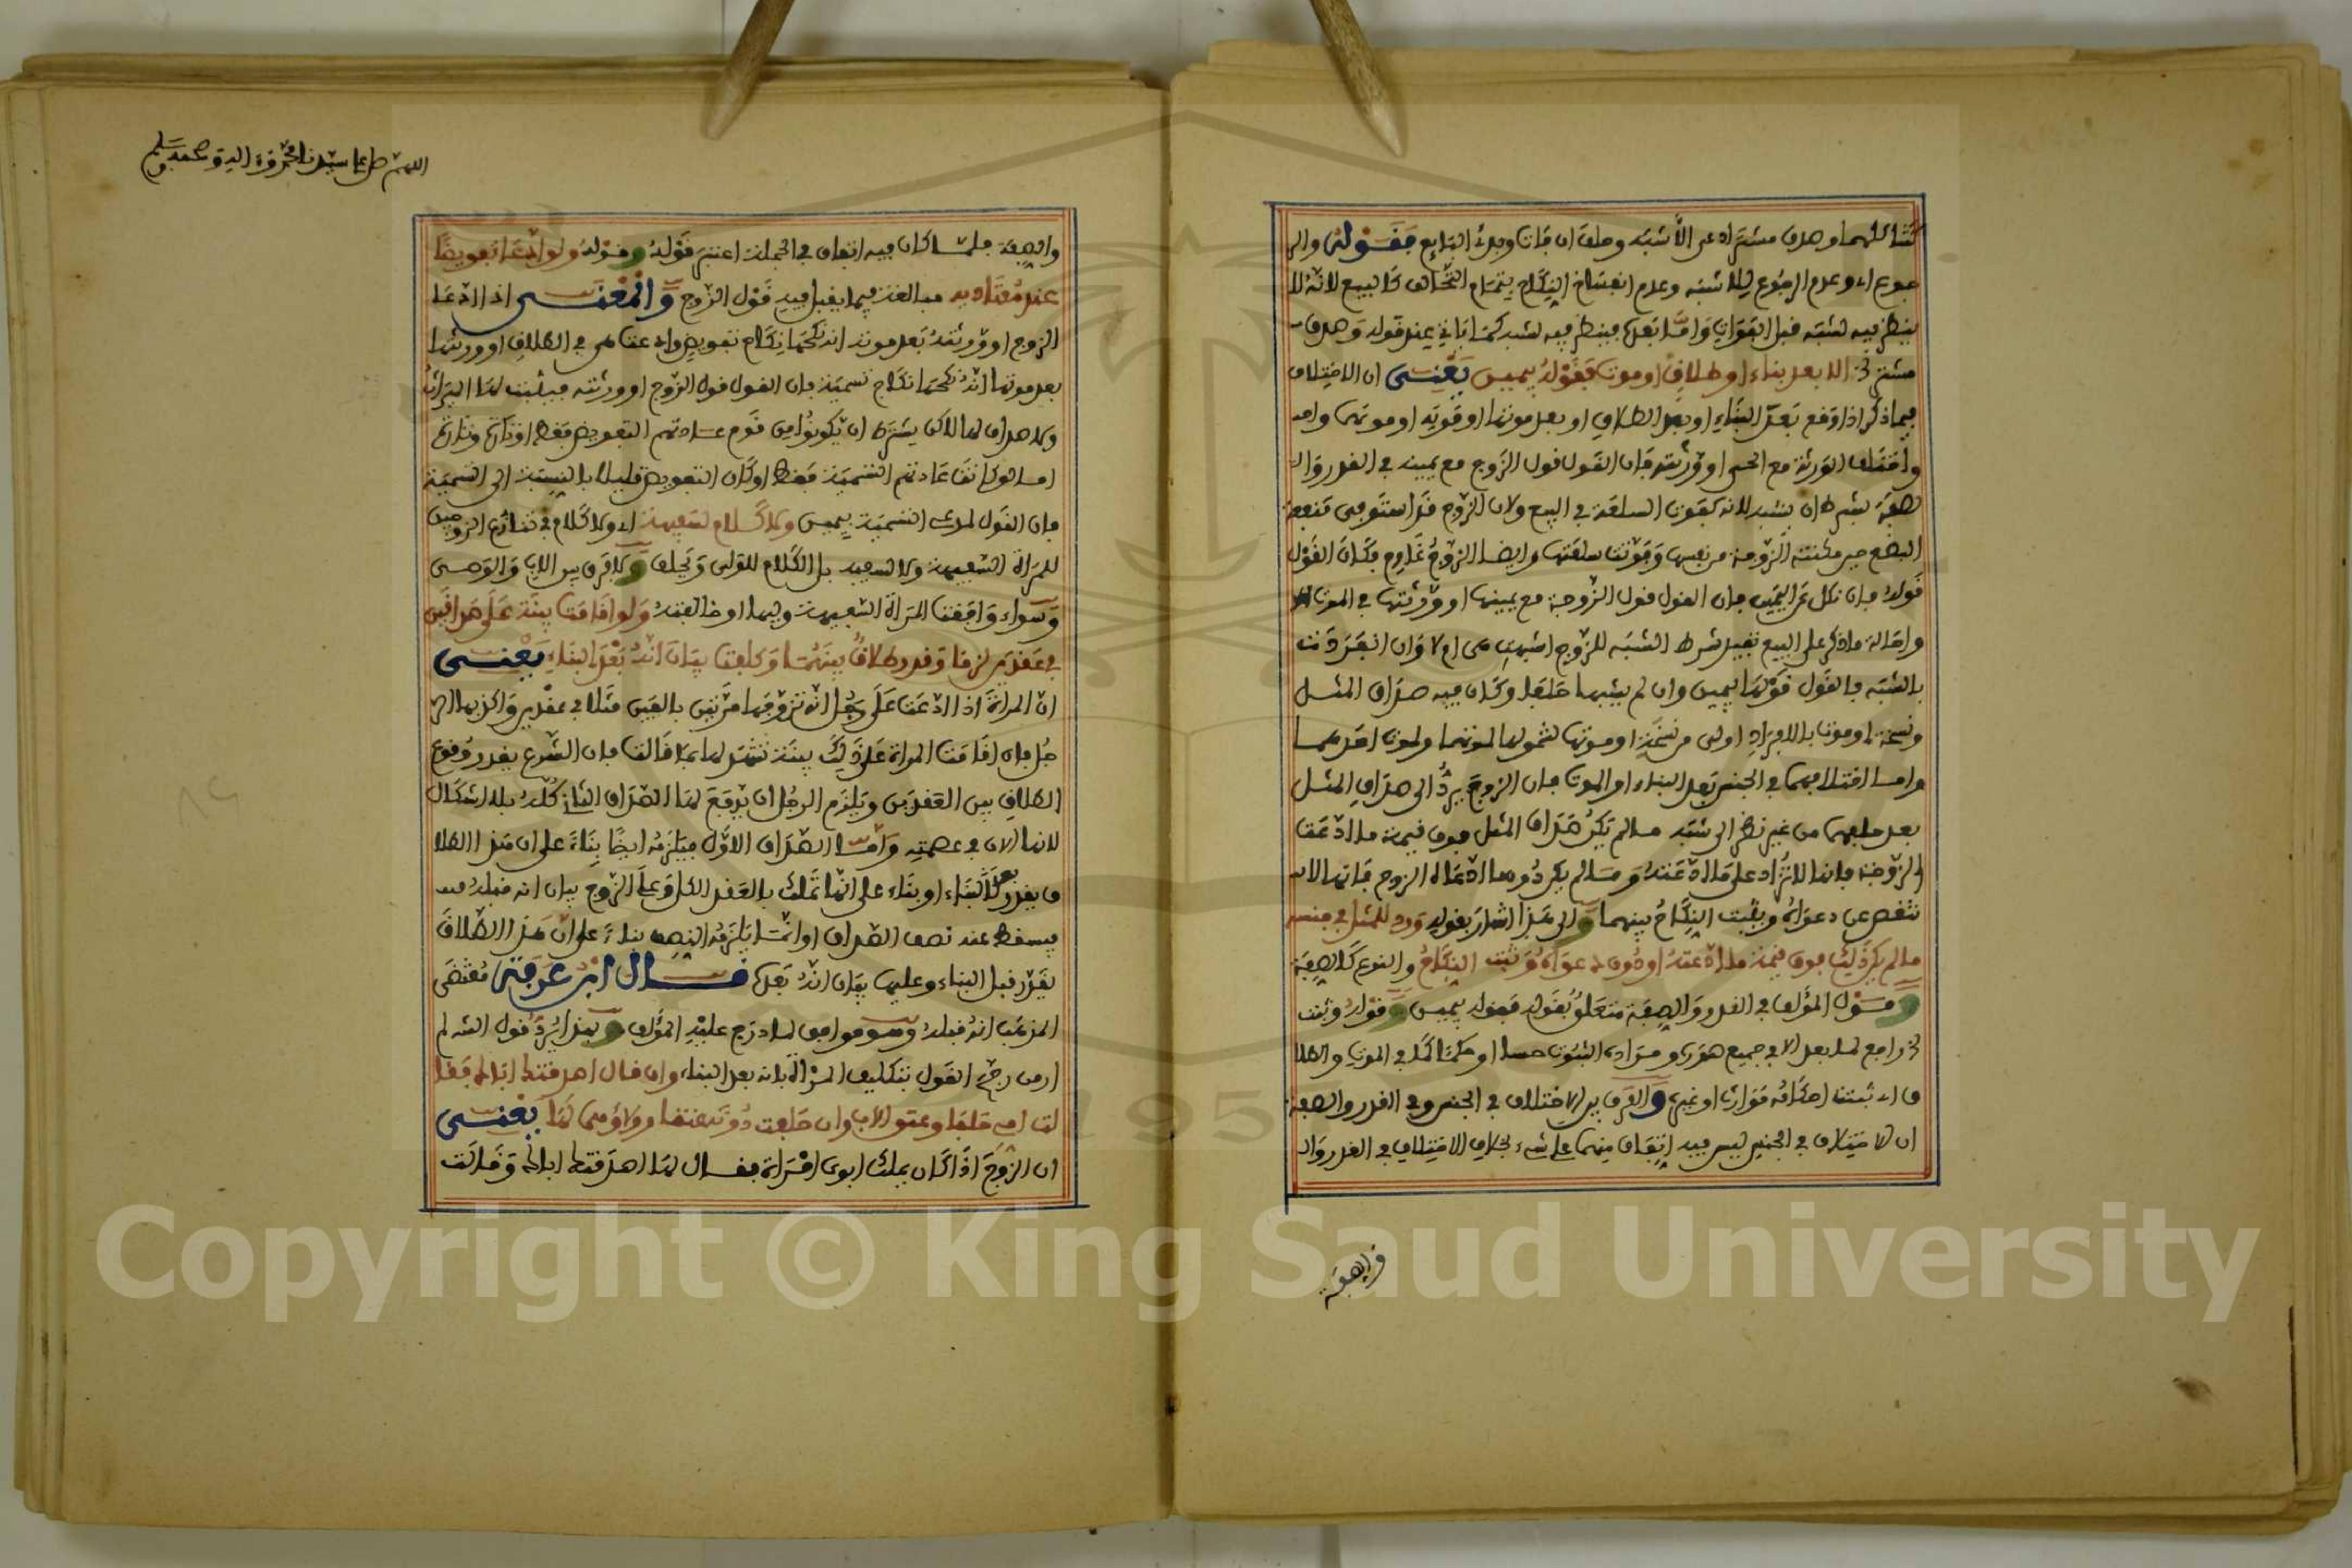 بينظر فيه لشبه قبل الفوات وأما بعده فينظر فيه لشبه كما يأتي عند قوله وهدف
إلا بعد بناء أو طلاق أو موت فقوله بيمين يعني أن الاختلاف
فيما ذكر إذا وقع بعد البناء أو بعد الطلاق أو بعد موتها أو موته أو موتهما
واختلف الورثة مع الحي أو ورثته فإن القول قول الزوج مع يمينه في القدر وال
صفة بشرط أن يشبه لأنه كفوت السلعة في البيع ولأن الزوج قد استوفى منفعة
البضع حين مكنته الزوجة من نفسها وفوتت سلعتها وأيضا الزوج غارم فكان القول
قوله فإن نكل عن اليمين فإن القول قول الزوجة مع يمينها أو ورثتها في الموت
وإحالة ما ذكر على البيع تفيد شرط الشبه للزوج أشبهت هي أم لا وإن انفردت
بالشبه فالقول قولها بيمين وإن لم يشبها حلفا وكان فيه صداق المثل
ونسخة أو موت بالإفراد أولى من نسخة أو موتها لشمولها لموتهما ولموت أحدهما
وأما اختلافهما في الجنس بعد البناء أو الموت فإن الزوج يرد إلى صداق المثل
بعد حلفهما من غير نظر إلى شبه ما لم يكن صداق المثل فوق قيمة ما ادعت
الزوجة فإنها لا تزاد على ما ادعته وما لم يكن دون ما ادعاه الزوج فإنها لا
تنقص عن دعواه ويثبت النكاح بينهما وإلى هذا أشار بقوله ورد للمثل في جنسه
ما لم يكن ذلك فوق قيمة ما ادعته أو دون دعواه وثبت النكاح والنوع كالصفة
وقول المؤلف في القدر والصفة متعلق بقوله فقوله بيمين وقوله وثبت
راجع لما بعد إلا في جميع صوره ومراده الثبوت حسا أو حكما كما في الموت والطلا
ق أي ثبتت أحكامه من إرث أو غيره والفرق بين الاختلاف في الجنس وفي القدر والصفة
أن الاختلاف في الجنس ليس فيه اتفاق منهما على شيء بخلاف الاختلاف في القدر وال
والصفة
اللهم صل على سيدنا محمد وآله وصحبه وسلم
والصفة فلما كان فيه اتفاق في الجملة اعتبر قوله وقوله ولو ادعى تفويضا
عند معتاديه مبالغة فيما يقبل فيه قول الزوج والمعنى إذا ادعى
الزوج أو ورثته بعد موته أنه نكحها نكاح تفويض وادعت هي في الطلاق أو ورثتها
بعد موتها أنه نكحها نكاح تسمية فإن القول قول الزوج أو ورثته فيثبت لها الميراث
ولا صداق لها لكن يشترط أن يكونوا من قوم عادتهم التفويض فقط أو تارة وتارة
أما لو كانت عادتهم التسمية فقط أو كان التفويض قليلا بالنسبة إلى التسمية
فإن القول لمدعي التسمية بيمين ولا كلام لسفيهة أي ولا كلام في تنازع الزوجين
للمرأة السفيهة ولا السفيه بل الكلام للولي ويحلف ولا فرق بين الأب والوصي
وسواء وافقت المرأة السفيهة وليها أو خالفته ولو أقامت بينة على صداقين
في عقدين لزما وقدر طلاق بينهما وكلفت بيان أنه بعد البناء يعني
أن المرأة إذا ادعت على رجل أنه تزوجها مرتين بألفين مثلا في عقدين وأكذبها الر
جل فإن أقامت المرأة على ذلك بينة تشهد لها بما قالت فإن الشرع يقدر وقوع
الطلاق بين العقدين ويلزم الرجل أن يدفع لها الصداق الثاني كله بلا إشكال
لأنها الآن في عصمته وأما الصداق الأول فيلزمه أيضا بناء على أن هذا الطلا
ق يقدر بعد البناء أو بناء على أنها تملك بالعقد الكل وعلى الزوج بيان أنه قبله
فيسقط عنه نصف الصداق أو إنما يلزمه النصف بناء على أن هذا الطلاق
يقدر قبل البناء وعليها بيان أنه بعده قال ابن عرفة مقتضى
المذهب أنه قبله وهو موافق لما درج عليه المؤلف
القول بتكليف المرأة بأنه بعد البناء وإن قال أصدقتك أباك فقا
لت أمي حلفا وعتق الأب وإن حلفت دونه عتقا وولاؤهما لها يعني
أن الزوج إذا كان يملك أبوي امرأة فقال لها أصدقتك أباك وقالت